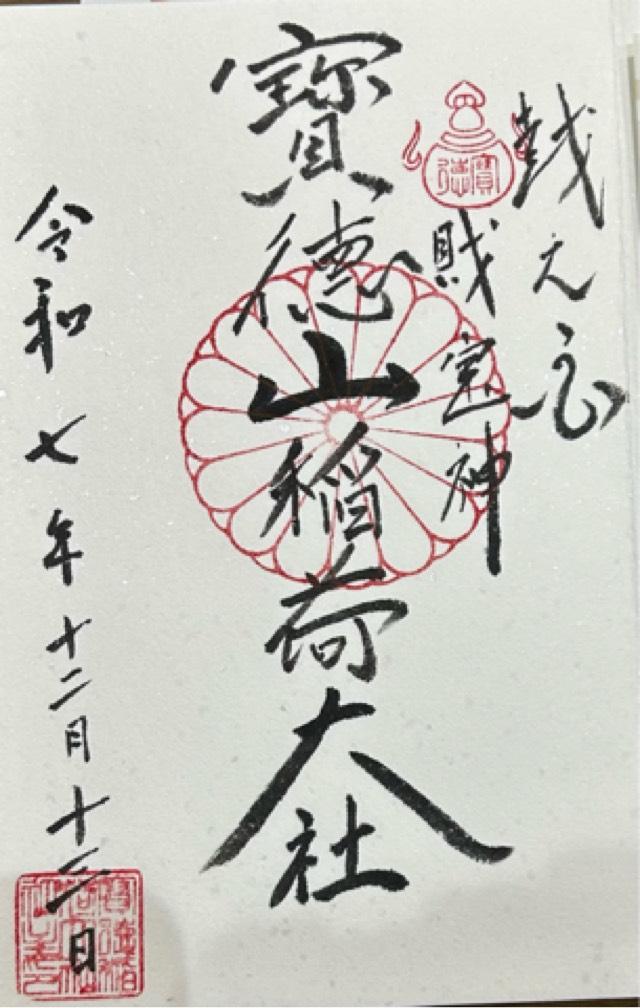 越元宮
寶徳
財宝神
寶徳山稲荷大社
令和七年十二月十三日